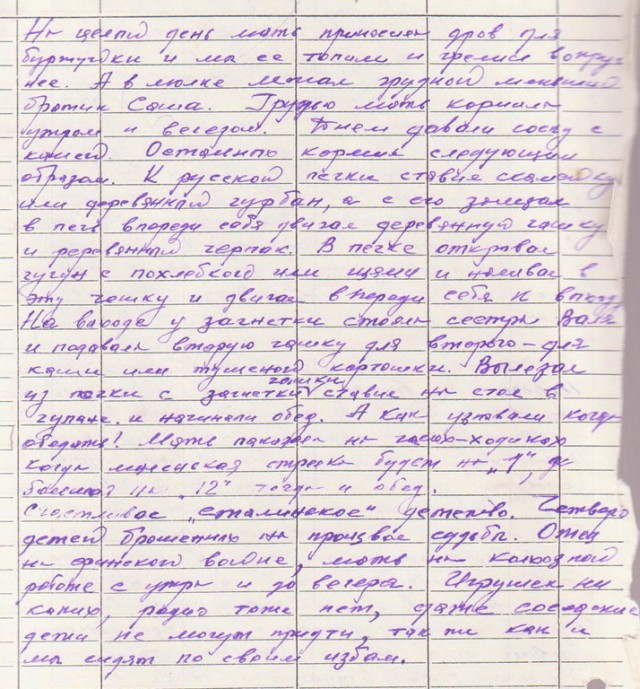 На целый день мать приносила дров для
буржуйки и мы ее топили и грелись вокруг
нее. А в люльке лежал грудной меньший
братик Саша. Грудью мать кормила
утром и вечером. Днем давали соску с
кашей. Остальных кормил следующим
образом. К русской печки ставил скамейку
или деревянный чурбан, а с его залезал
в печь впереди себя двигал деревянную чашку
и деревянный черпак. В печке открывал
чугун с похлебкой или щами и наливал в
эту чашку и двигал впереди себя к выходу
На выходе у загнетки стояла сестра Валя
и подавала вторую чашку для второго - для
каши или тушеной картошки. Вылезал
из печки с загнетки чашки ставил на стол в
чулане и начинали обед. А как узнавали когда
обедать! Мать показала на часах-ходиках
когда маленькая стрелка будет на „1", а
большая на „12" тогда и обед.
Счастливое „сталинское" детство. Четверо
детей брошенных на произвол судьбы. Отец
на финской войне, мать на колхозной
работе с утра и до вечера. Игрушек ни
каких, радио тоже нет, даже соседские
дети не могут придти, так же как и
мы сидят по своим избам.